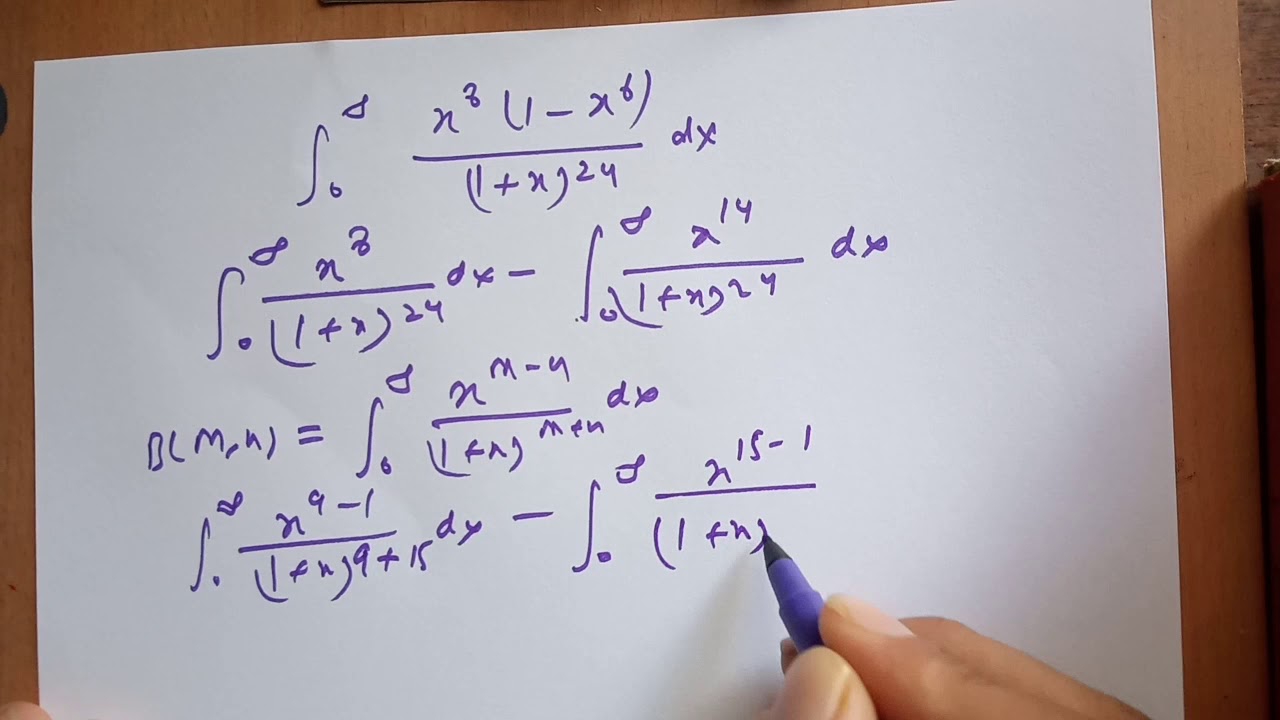 ∫₀^∞ x⁸ (1 − x⁶) / (1 + x)²⁴ dx
∫₀^∞ x⁸ / (1 + x)²⁴ dx − ∫₀^∞ x¹⁴ / (1 + x)²⁴ dx
B(m,n) = ∫₀^∞ x^(m−1) / (1 + x)^(m+n) dx
∫₀^∞ x^(9−1) / (1 + x)^(9+15) dx − ∫₀^∞ x^(15−1) / (1 + x)